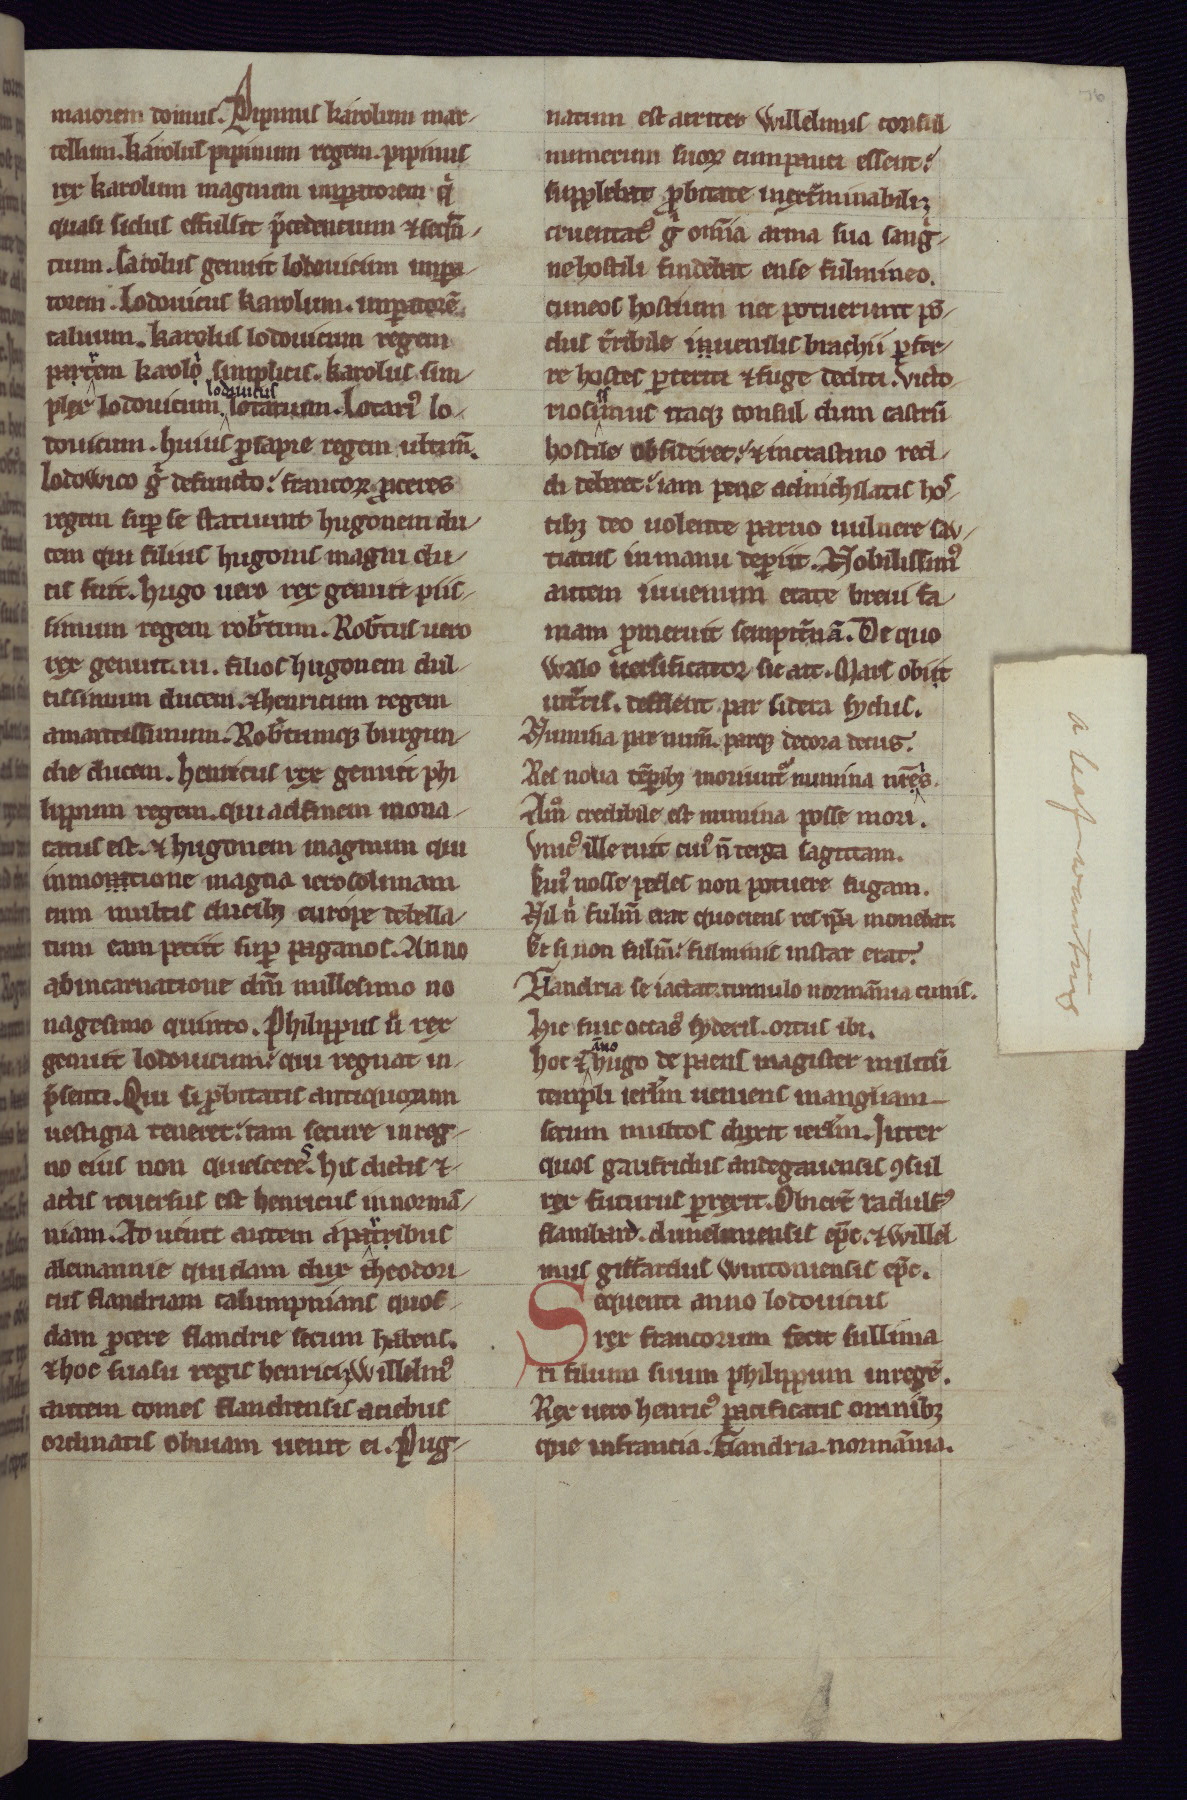 maiorem domus. Pipinus karolum mar-
tellum. karolus pipinum regem. pipinus
rex karolum magnum imperatorem q̃
quasi sidus effulsit p̃cedentium & secũ-
tium. Carolus genuit lodouicum impa-
torem. Lodouicus karolum. imperatorẽ
caluum. karolus lodouicum regem
patrem karoli simplicis. karolus sim-
plex lodouicum, lodouicus lotarium. Lotari⁹ lo-
douicum. huius prosapie regem ultim̃.
Lodowico g̃ defuncto: francoꝝ proceres
regem super se statuunt hugonem du-
cem qui filius hugonis magni du-
cis fuit. hugo uero rex genuit piis-
simum regem rob̃tum. Rob̃tus uero
rex genuit .iii. filios hugonem dul-
cissimum ducem. & henricum regem
amantissimum. Rob̃tumqꝫ burgun-
die ducem. henricus rex genuit phi
lippum regem. qui ad finem mona-
catus est. & hugonem magnum qui
in monitione magna ierosolimam
cum multis ducibꝫ europe debella-
tum eam petiit super paganos. Anno
ab incarnatione dñi millesimo no
nagesimo quinto. Philippus ũ rex
genuit lodouicum: qui regnat in-
p̃senti. Qui si probitatis antiquorum
uestigia teneret: tam secure in reg-
no eius non quiesceres. his dictis &-
actis reuersus est henricus in normã-
niam. Aduenit autem a patribus
alemannie quidam dux theodori
cus flandriam calumpnians quos-
dam procere flandrie secum habens.
& hoc suasu regis henrici. Willelm⁹
autem comes flandrensis aciebus
ordinatis obuiam uenit ei. Pug-
natum est acriter Willelmus consul
numerum suoꝝ cum pauci essent:
supplebat probitate inext̃minabilia
cruentat⁹ g̃ omĩa arma sua sang̃-
ne hostili findebat ense fulmineo.
cuneos hostium nec potuerunt põ-
dus t̃ribile iuuenilis brachii perfer-
re hostes perterriti & fuge dediti. Victo-
riosissimus itaqꝫ consul dum castrũ
hostile obsideret: & in crastino red-
di deberet: iam pene adnichilatis hos-
tibꝫ deo uolente paruo uulnere sau-
ciatus in manu deperiit. Nobilissim⁹
autem iuuenum etate breui fa-
mam promeruit sempit̃nã. De quo
Walo uersificator sic ait. Mars obiit
in t̃ris. deflent par sidera sydus.
Numina par num̃. parqꝫ decora decus.
Res noua tẽporibꝫ moriunt̃ numina nr̃is.
Am̃ credibile est numina posse mori.
Vnic⁹ ille ruit cui⁹ ñ terga sagittam.
Cui⁹ nosse pedes non potuere fugam.
Nil ñ fulm̃ erat quociens res ip̃a monebat.
Et si non fulm̃: fulminis instar erat.
Flandria se iactat. tumulo normãnia cunis.
Hic fuit occas⁹ syderis. ortus ibi.
hoc & ãno hugo de paens magister militũ
templi ierl̃m ueniens in angliam-
secum multos duxit ierl̃m. Inter
quos gaufridus andegauensis ꝯsul
rex futurus prexit. Obierẽ radulf⁹
flambard. dunelmensis ep̃c. & willel
mus giffardus Wintoniensis ep̃c.
Sequenti anno lodouicus
rex francorum fecit sullima
ri filium suum philippum in regẽ.
Rex uero henric⁹ pacificatis omnibꝫ
que in francia. flandria. normãnia.
76
a leaf wanting